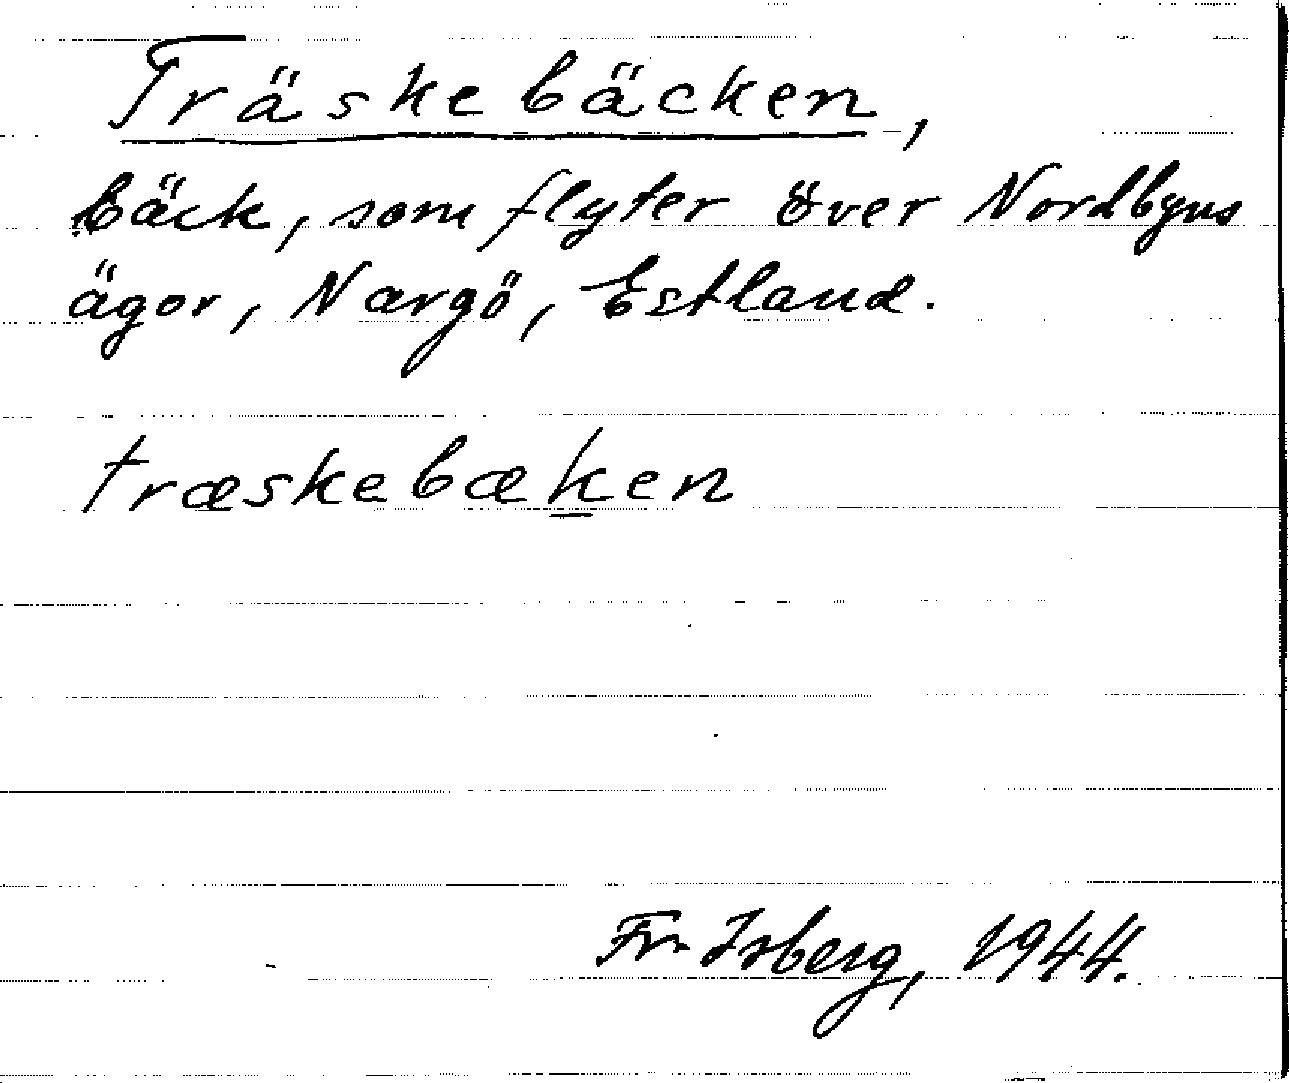 Träskebäcken,
bäck, som flyter över Nordbyns
ägor, Nargö, Estland.
træskebæken
Fr. Isberg, 1944.